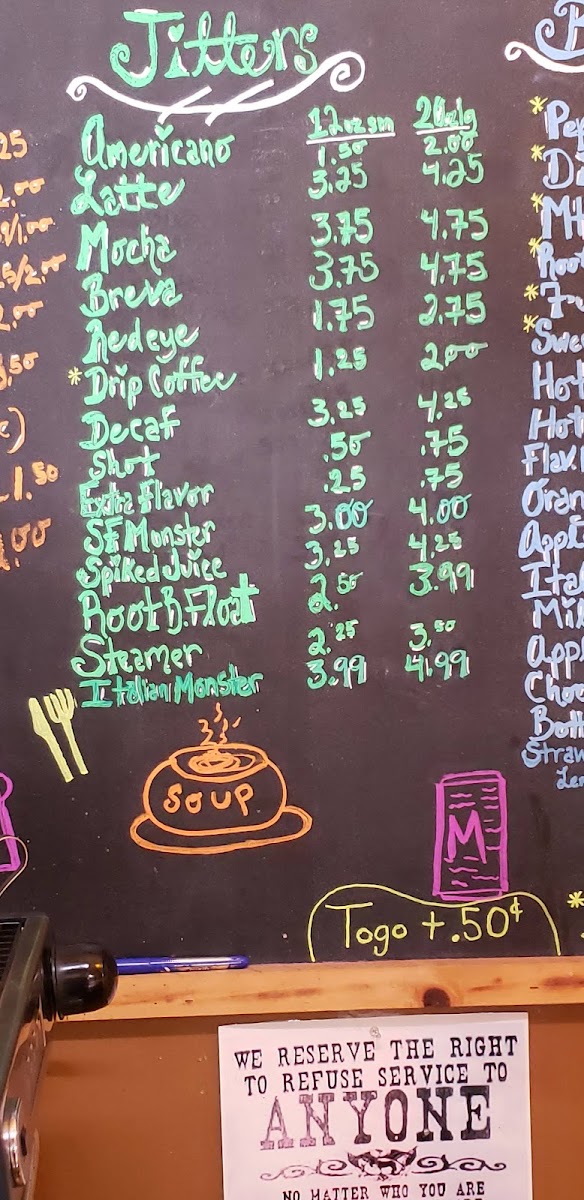 Jitters
12oz sm 20oz lg
Americano 1.50 2.00
Latte 3.25 4.25
Mocha 3.75 4.75
Breva 3.75 4.75
Redeye 1.75 2.75
*Drip Coffee 1.25 2.00
Decaf 3.25 4.25
Shot .50 .75
Extra Flavor .25 .75
SF Monster 3.00 4.00
Spiked Juice 3.25 4.25
Root B. Float 2.50 3.99
Steamer 2.25 3.50
Italian Monster 3.99 4.99
SOUP
M
Togo +.50¢
Root
Hot
Hot
WE RESERVE THE RIGHT
TO REFUSE SERVICE TO
ANYONE
NO MATTER WHO YOU ARE